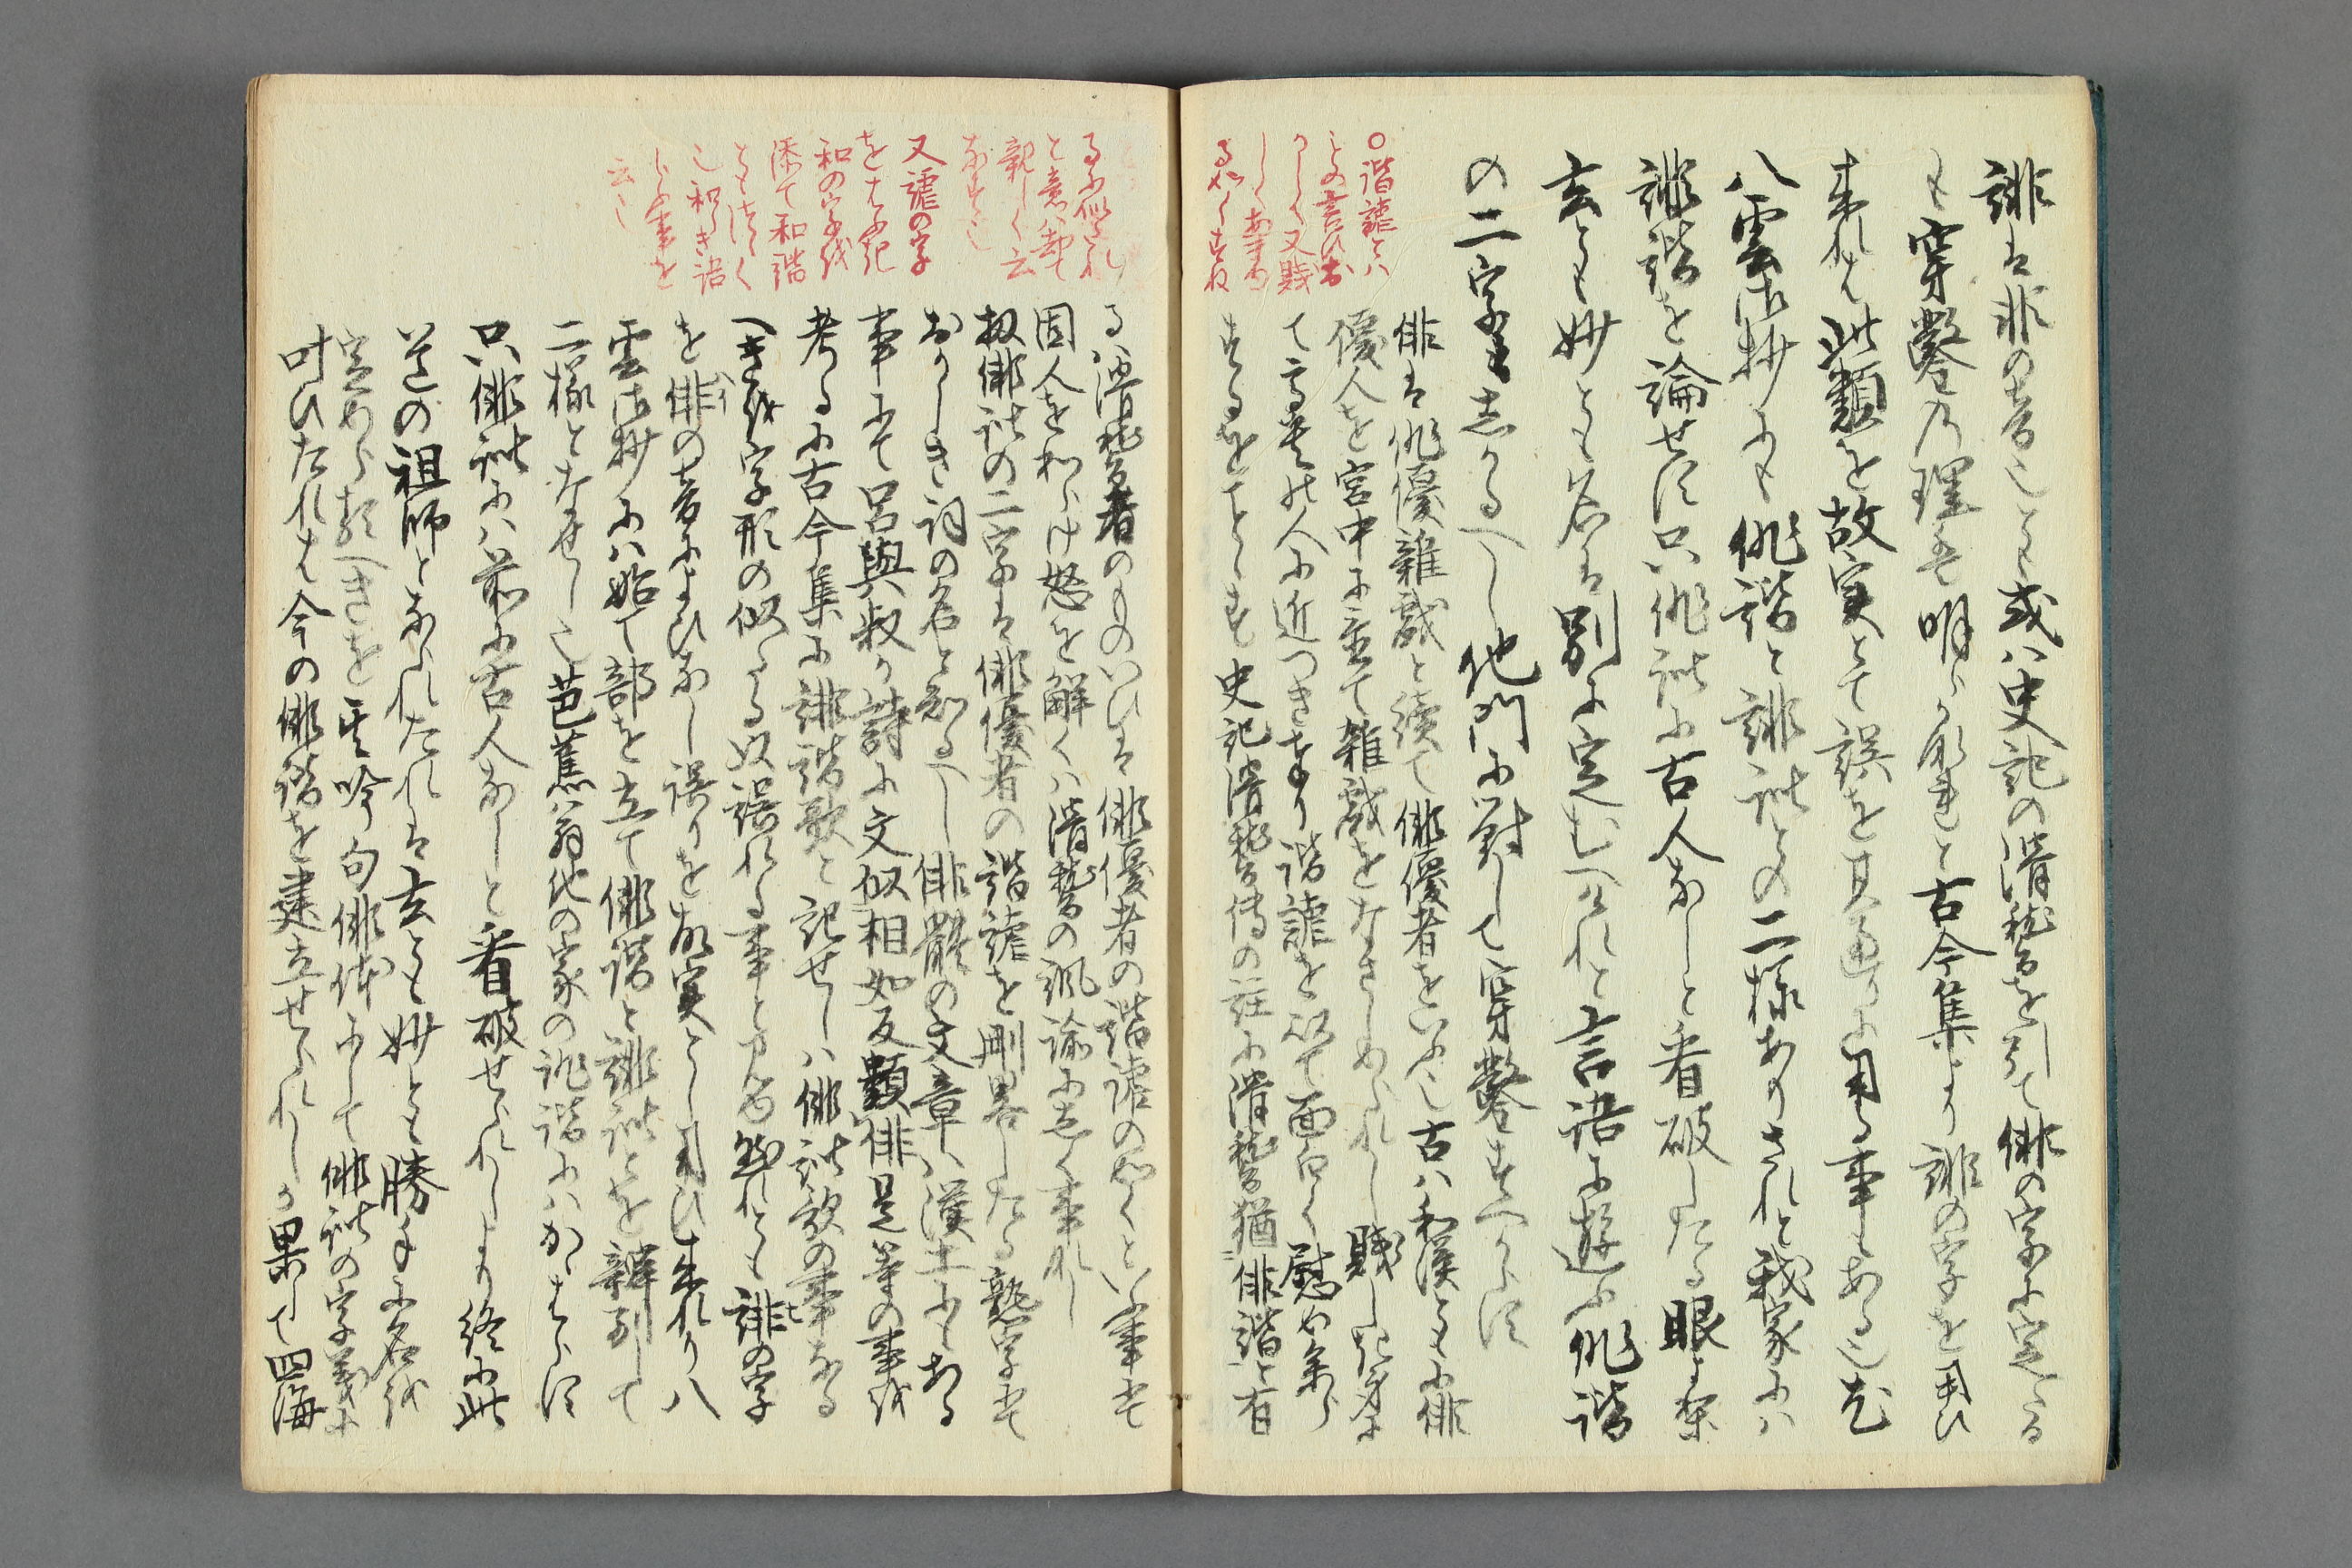 誹は非の音也とし或ハ史記の滑稽を引て俳の字に定たる
も穿鑿の理屈明らかなれと古今集より誹の字を用ひ
来れは此類を故実とて誤を其通りに用る事もある也尤
八雲御抄にも俳諧と誹諧との二様ありされと我家にハ
誹諧を論せす只俳諧に古人なしと看破したる眼より
玄とも妙とも名は別に定むへけれと言語に遊ふ俳諧
の二字もしかるへし他門に対して穿鑿すへからす
俳は俳優雑戯と続て俳優者をいふ也古ハ和漢ともに俳
優人を宮中に置て雑戯をなさしめられし賤しき身に
て高貴の人に近つき奉り諧謔を以て面白く慰め参ら
するをことゝす史記滑稽伝の註に滑稽猶俳諧と有
○諧謔とハ
との言ひお
かしく又賤
しくあする
る如くすれ
る滑稽者のものいひは俳優者の諧謔の如くといふ事にて
固人を和らけ怒を解くハ滑稽の諷諭に出く事なれし
扨俳諧の二字は俳優者の諧謔を刪略したる熟字にて
おかしき詞の名と知るへし俳體の文章ハ漢土にもある
事にて呂與叔か詩に文似相如反類俳是等の事を
考るに古今集に誹諧歌と記せしハ俳諧歌の事なる
へきを字形の似たる故誤れる事と見る然れとも誹の字
を俳の音によひなし誤りを故実とし用ひ来れり八
雲御抄にハ始て部を立て俳諧と誹諧とを辨別して
二様となせし也芭蕉翁他の家の誹諧にハかゝはらす
只俳諧にハ前に古人なしと看破せられしより終に此
道の祖師となられたれは玄とも妙とも勝手に名を
定めらるへきを其吟句俳体にして俳諧の字義に
叶ひたれは今の俳諧を建立せられしか果して四海
るに似たれ
と意ハ却て
親しく云
なすこと也
又謔の字
をはふき
和の字を
添て和諧
ともつゝく
也和らき諧
らふ事を
云也